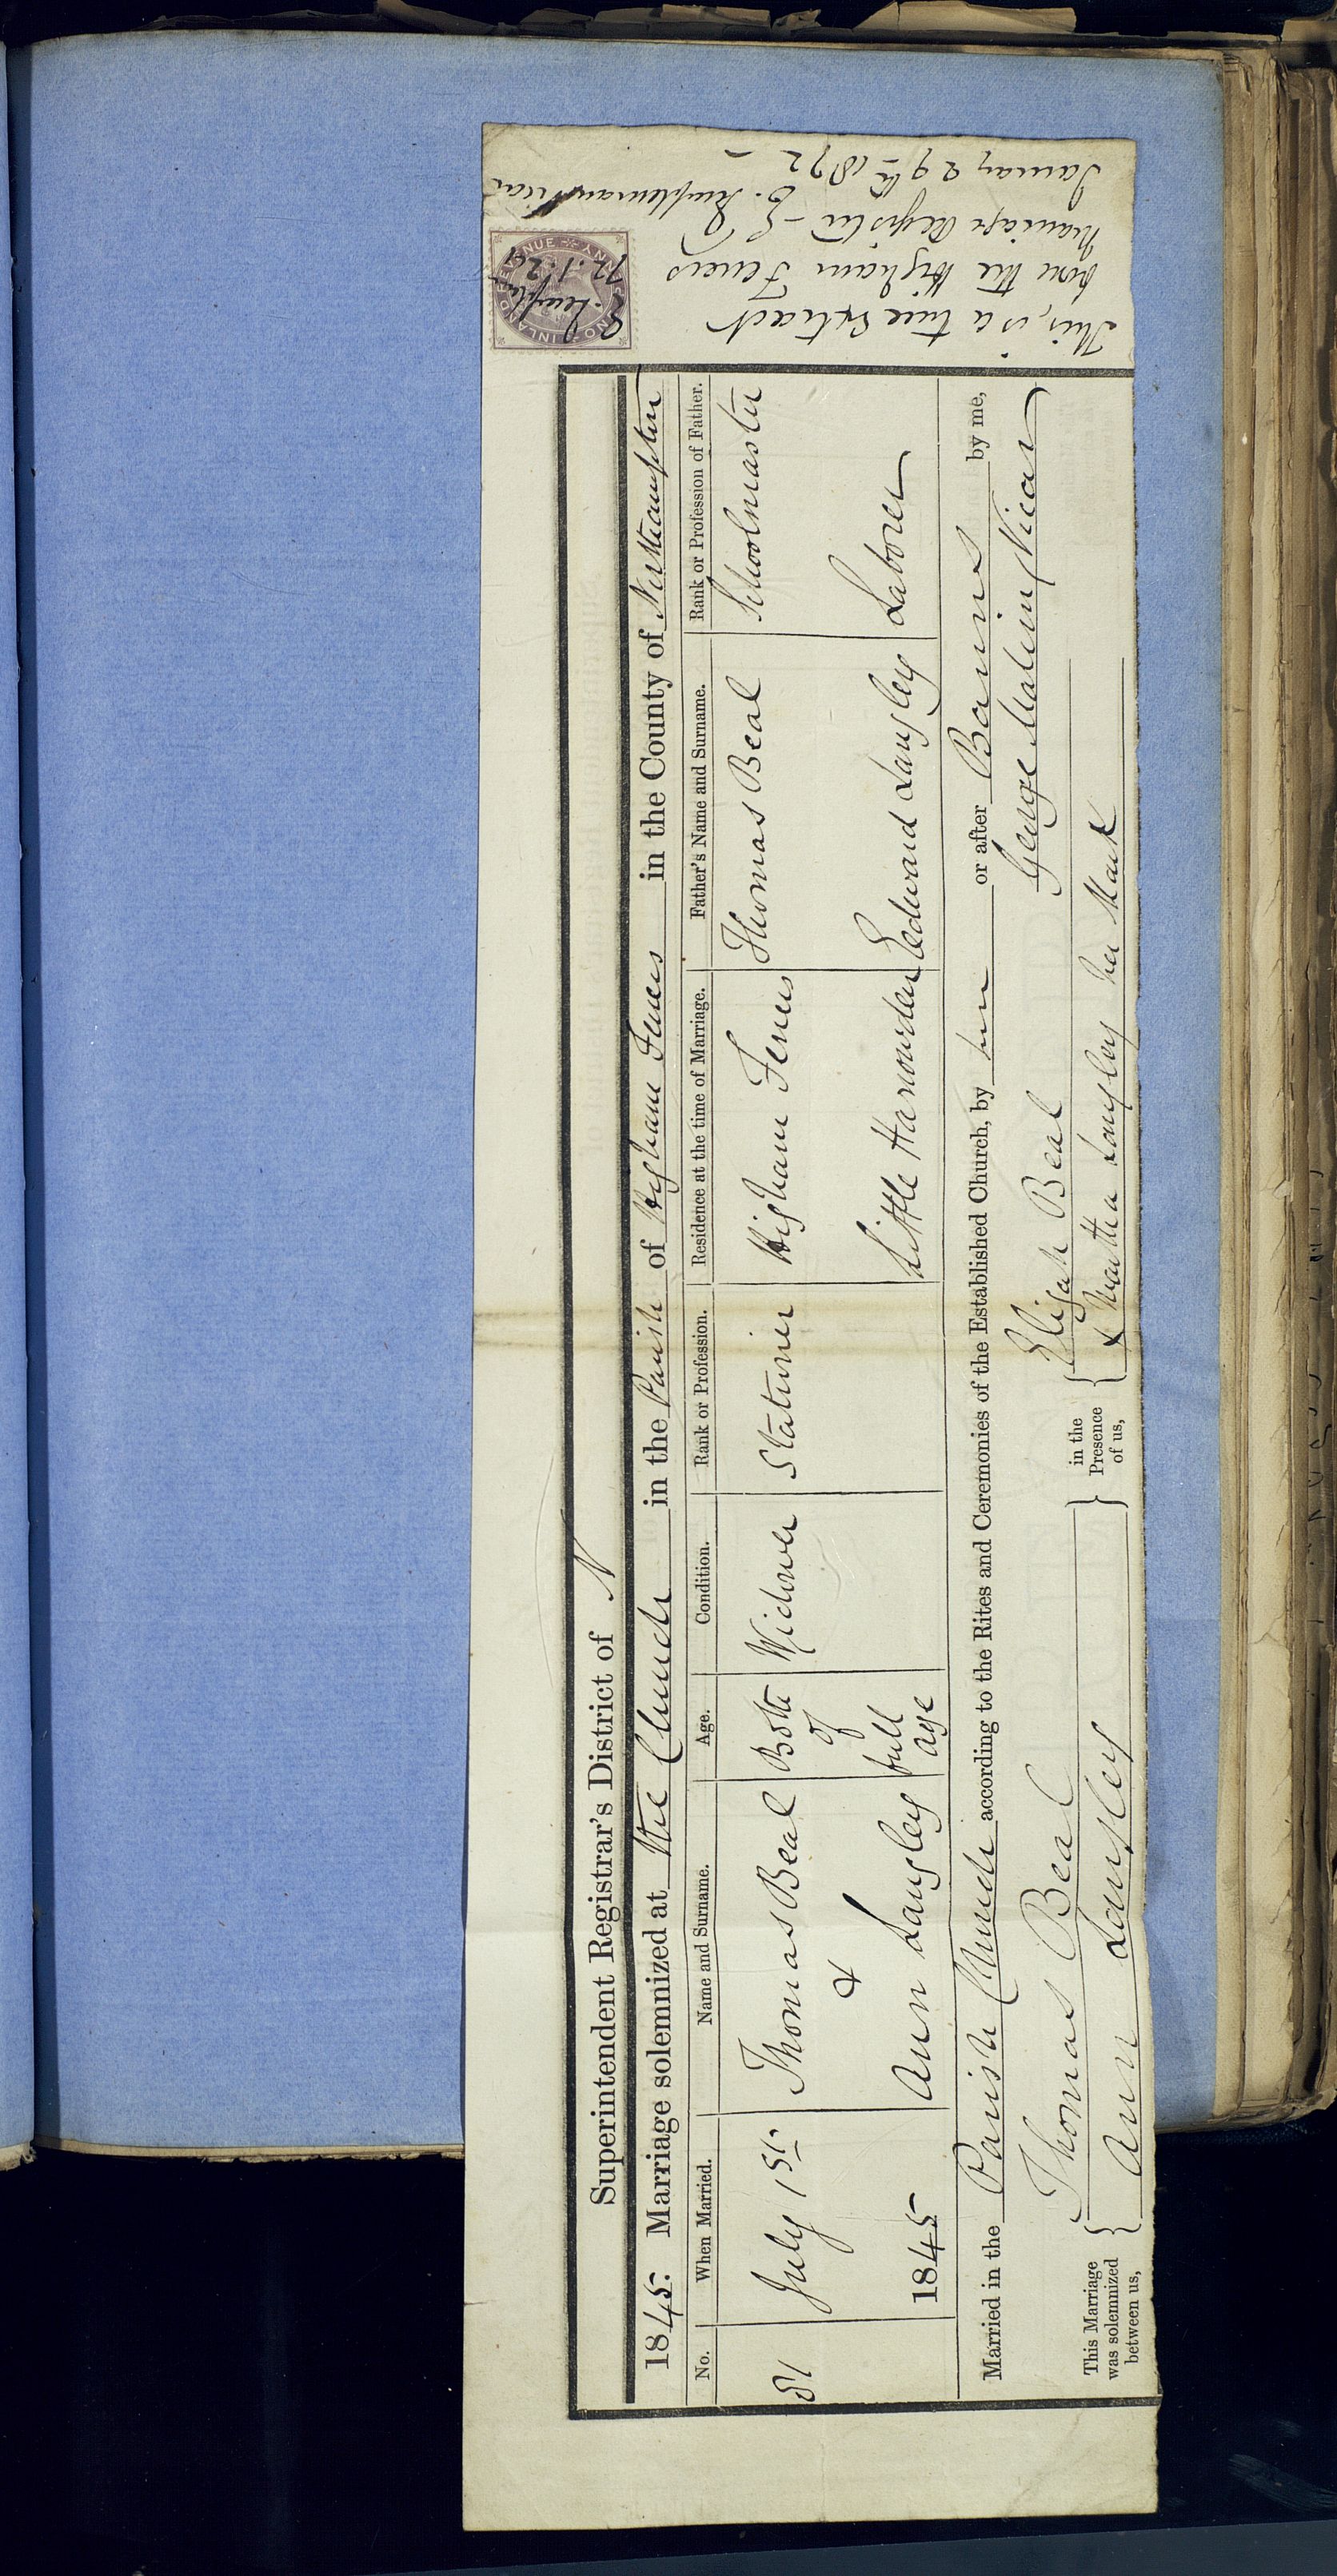 Superintendent Registrar's District of N
1845. Marriage solemnized at the Church in the Parish of Higham Ferrers in the County of Northampton
No. When Married. Name and Surname. Age. Condition. Rank or Profession. Residence at the time of Marriage. Father's Name and Surname. Rank or Profession of Father.
81 July 1st Thomas Beal Both Widower Stationer Higham Ferrers Thomas Beal Schoolmaster
& of
1845 Ann Langley full age Little Harrowden Edward Langley Laborer
Married in the Parish Church according to the Rites and Ceremonies of the Established Church, by or after Banns by me,
George Malim Vicar
This Marriage was solemnized between us, { Thomas Beal } in the Presence of us, { Elijah Beal
Ann Langley X Martha Langley her Mark
This, is a true Extract
from the Higham Ferrers
Marriage Register — E. Templeman Vicar
January 29th 1872 —
INLAND REVENUE ONE PENNY
E. Templeman
72.1.29